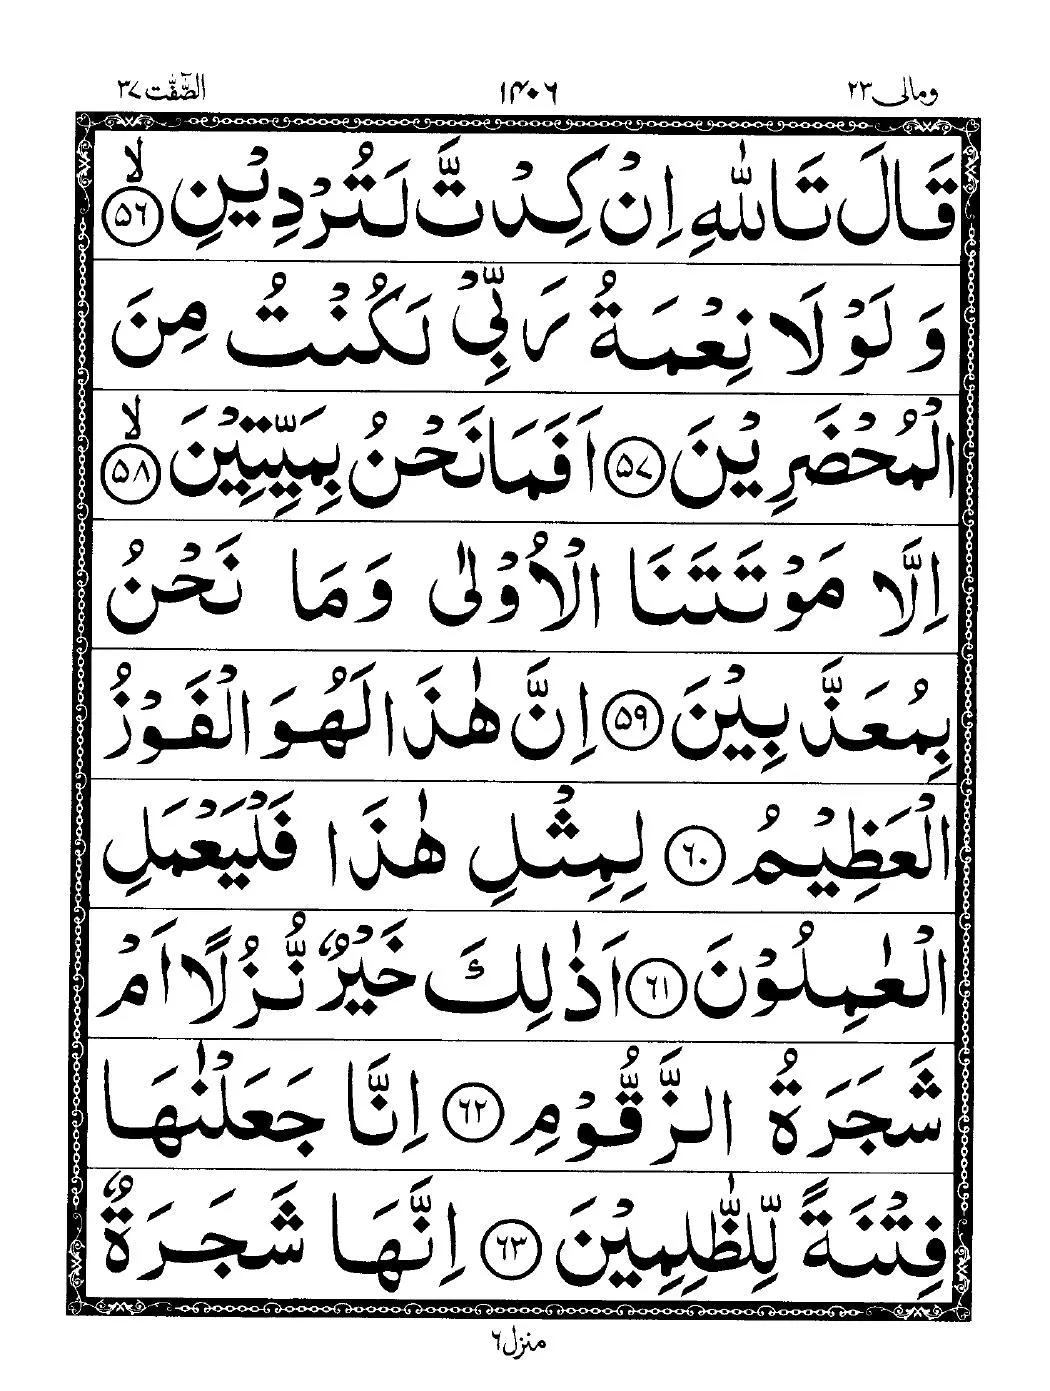 ومالی ٢٣ ١٤٠٦ الصّٰٓفّٰت ٣٧
قَالَ تَاللّٰهِ اِنْ كِدْتَّ لَتُرْدِيْنِ ﴿٥٦﴾ۙ
وَ لَوْ لَا نِعْمَةُ رَبِّيْ لَكُنْتُ مِنَ
الْمُحْضَرِيْنَ ﴿٥٧﴾ اَفَمَا نَحْنُ بِمَيِّتِيْنَ ﴿٥٨﴾ۙ
اِلَّا مَوْتَتَنَا الْاُوْلٰى وَمَا نَحْنُ
بِمُعَذَّبِيْنَ ﴿٥٩﴾ اِنَّ هٰذَا لَهُوَ الْفَوْزُ
الْعَظِيْمُ ﴿٦٠﴾ لِمِثْلِ هٰذَا فَلْيَعْمَلِ
الْعٰمِلُوْنَ ﴿٦١﴾ اَذٰلِكَ خَيْرٌ نُّزُلًا اَمْ
شَجَرَةُ الزَّقُّوْمِ ﴿٦٢﴾ اِنَّا جَعَلْنٰهَا
فِتْنَةً لِّلظّٰلِمِيْنَ ﴿٦٣﴾ اِنَّهَا شَجَرَةٌ
منزل ٦